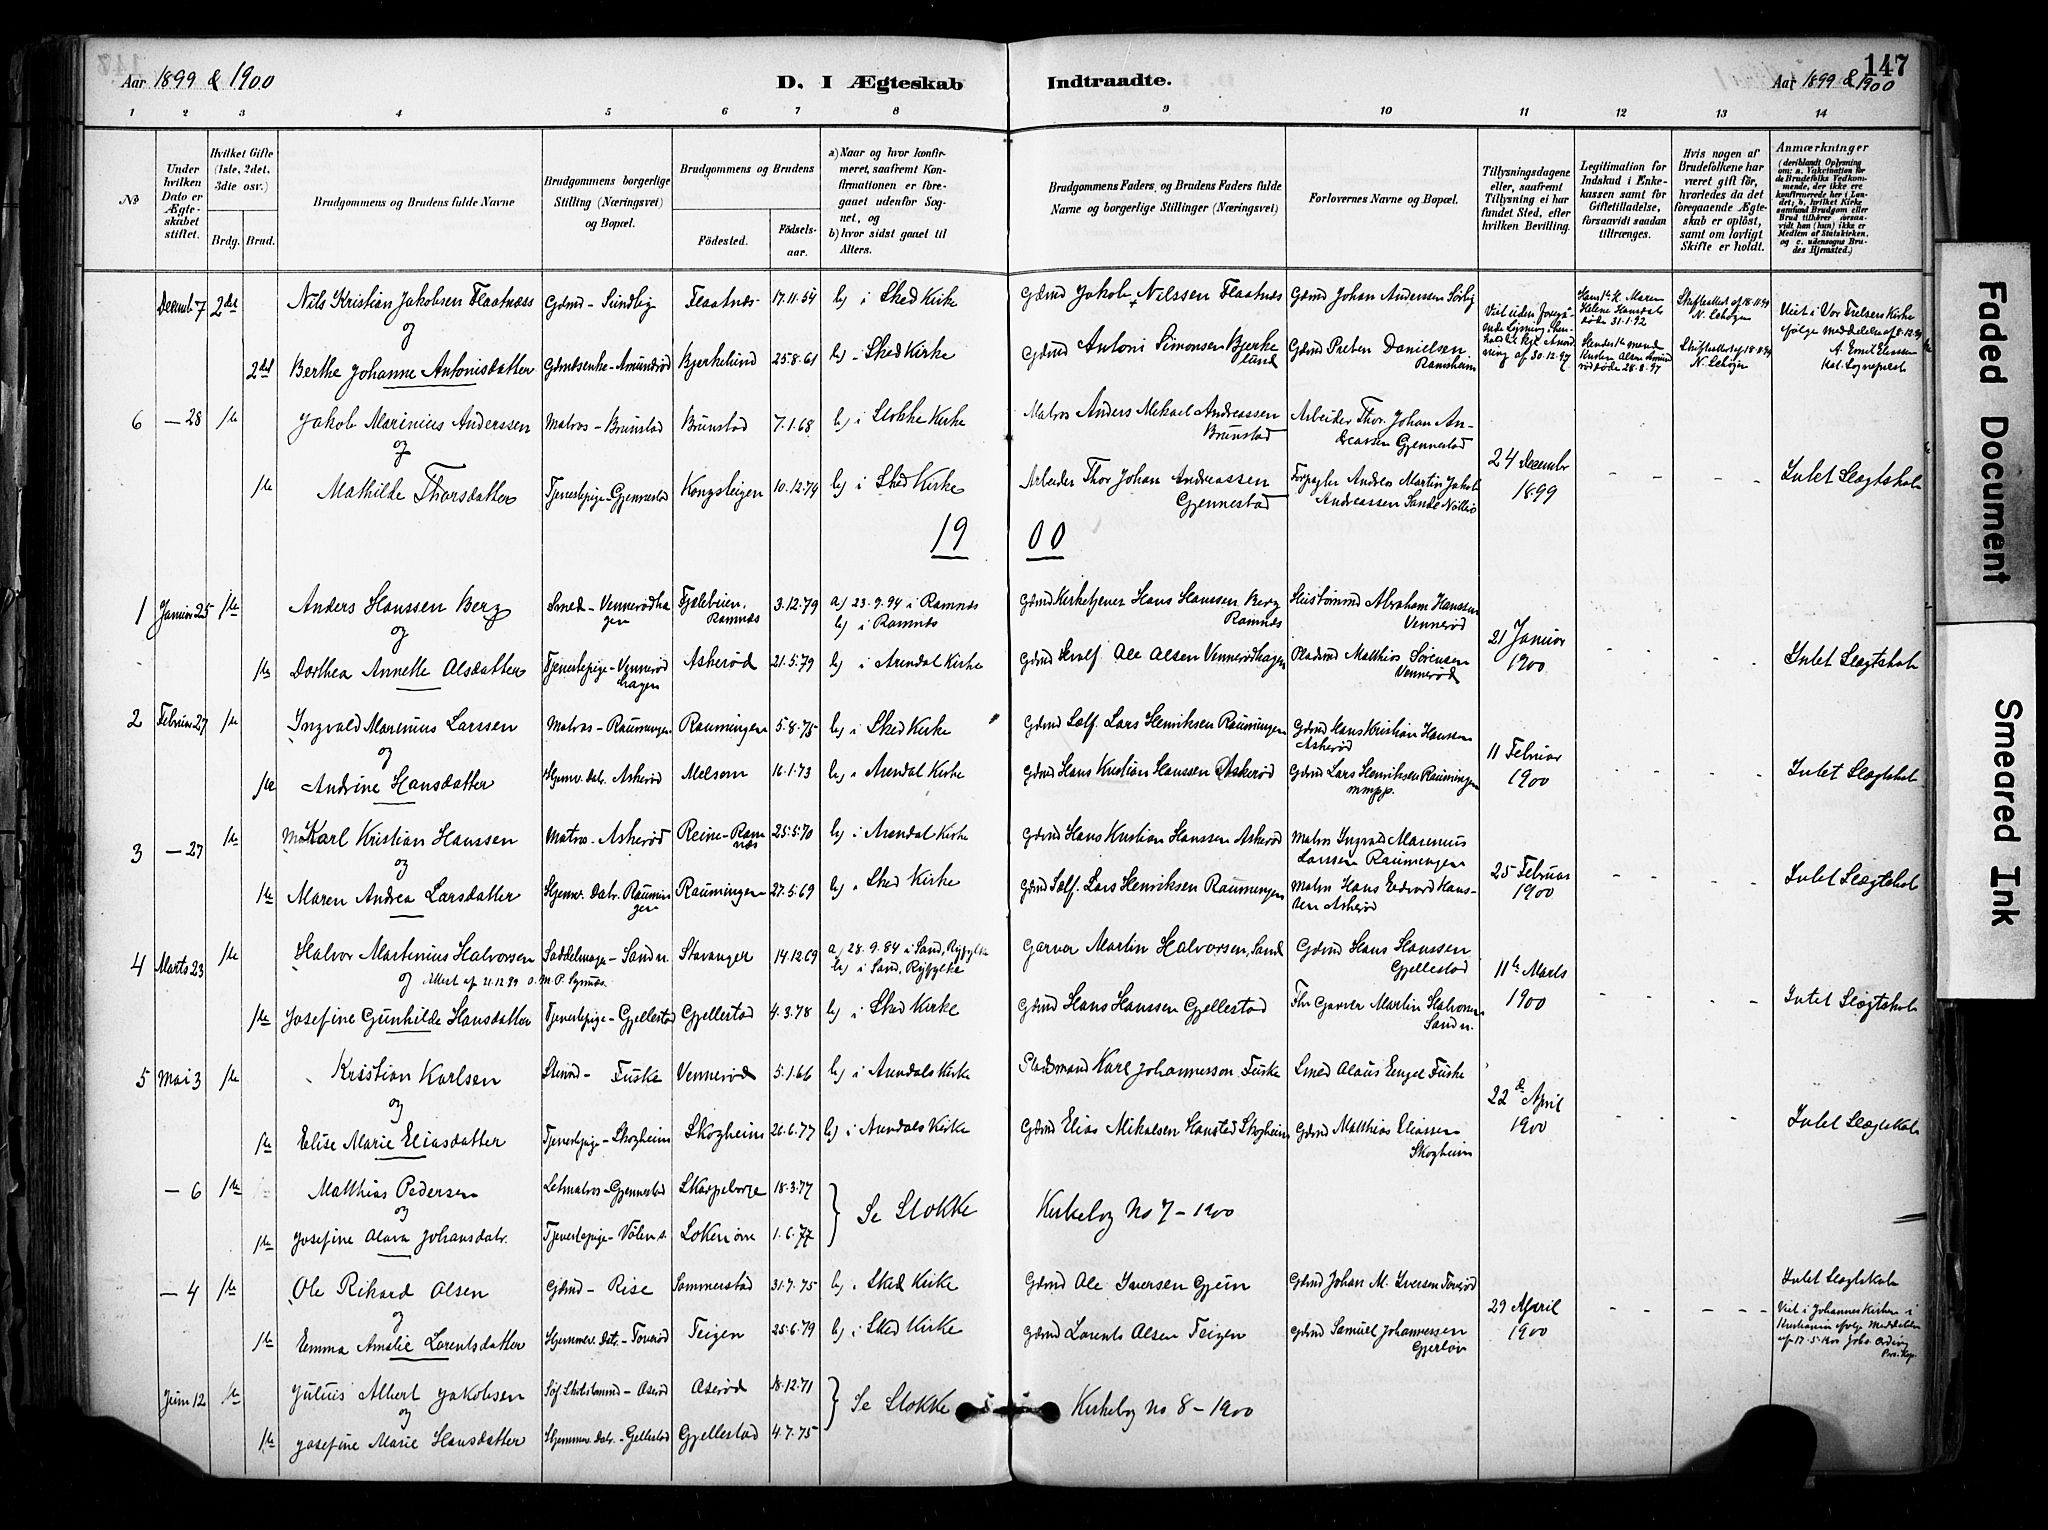 147
Aar 1899 & 1900
D. I Ægteskab Indtraadte.
Aar 1899 & 1900
1 2 3 4 5 6 7 8 9 10 11 12 13 14
No
Under hvilken Dato er Ægteskabet stiftet.
Hvilket Gifte (1ste, 2det, 3die osv.)
Brdg. Brud.
Brudgommens og Brudens fulde Navne
Brudgommens borgerlige Stilling (Næringsvei) og Bopæl.
Brudgommens og Brudens
Fødested.
Fødselsaar.
a) Naar og hvor konfirmeret, saafremt Konfirmationen er foregaaet udenfor Sognet, og
b) hvor sidst gaaet til Alters.
Brudgommens Faders, og Brudens Faders fulde Navne og borgerlige Stillinger (Næringsvei)
Forlovernes Navne og Bopæl.
Tillysningsdagene eller, saafremt Tillysning ei har fundet Sted, efter hvilken Bevilling.
Legitimation for Indskud i Enkekassen samt for Giftetilladelse, forsaavidt saadan tiltrænges.
Hvis nogen af Brudefolkene har været gift før, hvorledes da det foregaaende Ægteskab er opløst, samt om lovligt Skifte er holdt.
Anmærkninger
(deriblandt Oplysning om: a. Vakcination for de Brudefolks Vedkommende, der ikke ere konfirmerede her i Landet; b. hvilket Kirkesamfund Brudgom eller Brud tilhører, forsaavidt han (hun) ikke er Medlem af Statskirken, og c. udensogns Brudes Hjemsted.)
Decemb 7 2det Nils Kristian Jakobsen Flaatnæss Gdmd - Sundby Flaatnæs 17.11.54 b) i Sked Kirke Gdmd Jakob Nilssen Flaatnæs Gdmd Johan Andersen Sørby
og
2det Berthe Johanne Antonisdatter Gdmdsenke - Amundrød Bjerkelund 25.8.61 b) - Sked Kirke Gdmd Antoni Simonsen Bjerkelund Gdmd Preben Danielsen Ramsheim
Skifteattest af 18.11.99 N. Lehozen
Viet i Vor Frelsers Kirke
6 - 28 1ste Jakob Marinius Anderssen Matros - Brunstad Brunstad 7.1.68 b) i Stokke Kirke Matros Anders Mikael Andreassen Brunstad Arbeider Thor Johan Andreassen Gjennestad
og
24 December 1899 - - - Intet Slægtskab
1ste Mathilde Thorsdatter Tjenestepige - Gjennestad Kongsteigen 10.12.74 b) i Sked Kirke Arbeider Thor Johan Andreassen Gjennestad Forpagter Anders Martin Jakob Andreassen Sande Nøtterø
19 00
1 Januar 25 1ste Anders Hanssen Berg Smed - Vennerødhagen Fjeleveien, Ramnæs 3.12.79 a) 23.9.94 i Ramnæs b) i Ramnæs Gdmd Kirketjener Hans Hanssen Berg Ramnæs Hustømmd Abraham Hanssen Vennerød
og
21 Januar 1900 - - - Intet Slægtskab
1ste Dorthea Annette Olsdatter Tjenestepige - Vennerødhagen Askerød 21.5.79 b) i Arendal Kirke Gdmd Ole Olsen Vennerødhagen Pladsmd Matthis Sørensen Vennerød
2 Februar 27 1ste Ingvald Marenius Larssen Matros - Raumingen Raumingen 5.8.75 b) i Sked Kirke Gdmd Self. Lars Henriksen Raumingen Gdmd Hans Kristian Hanssen Askerød
og
11 Februar 1900 - - - Intet Slægtskab
1ste Andrine Hansdatter Hjemv. datr. Askerød Melsom 16.1.73 b) i Arendal Kirke Gdmd Hans Kristian Hanssen Askerød Gdmd Lars Henriksen Raumingen mmpp.
3 - 27 1ste Karl Kristian Hanssen Matros - Askerød Reine - Ramnæs 25.5.70 b) i Arendal Kirke Gdmd Hans Kristian Hanssen Askerød Matros Ingvald Marenius Larssen Raumingen
og
25 Februar 1900 - - - Intet Slægtskab
1ste Maren Andrea Larsdatter Hjemv. Datr. Raumingen Raumingen 27.5.69 b) i Sked Kirke Gdmd Self. Lars Henriksen Raumingen Matros Hans Edvard Hanssen Askerød
4 Marts 23 1ste Halvor Martinius Halvorsen Saddelmager - Sande Stavanger 14.12.69 a) 28.9.84 i Sand, Ryfylke b) i Sand, Ryfylke Garver Martin Halvorsen, Sand Gdmd Hans Hanssen Gjellestad
og Attest af 21.12.99
11te Marts 1900 - - - Intet Slægtskab
1ste Josefine Gunhilde Hansdatter Tjenestepige - Gjellestad Gjellestad 4.3.78 b) i Sked Kirke Gdmd Hans Hanssen Gjellestad Garver Martin Halvorsen Sande
5 Mai 3 1ste Kristian Karlsen Fuske Vennerød 5.1.66 b) i Arendals Kirke Pladsmand Karl Johannesson Fuske Smed Olaus Engel Fuske
og
22de April 1900 - - - Intet Slægtskab
1ste Elise Marie Eliasdatter Tjenestepige - Skogheim Skogheim 26.6.77 b) i Arendals Kirke Gdmd Elias Mikalsen Hansted Skogheim Gdmd Matthias Eliassen Skogheim
- 6 1ste Matthias Pedersen Letmatros - Gjennestad Skarpeborge 18.3.77
og Se Stokke Kirkebog No 7 - 1900
1ste Josefine Olava Johansdatr. Tjenestepige - Volen s. Løkenøre 1.6.77
- 4 1ste Ole Rikard Olsen Gdmd - Rise Sommerstad 31.7.75 b) i Sked Kirke Gdmd Ole Iversen Gjein Gdmd Johan M. Iversen Toverød
og
29 April 1900 - - - Intet Slægtskab
1ste Emma Amalie Lorentsdatter Hjemmev. Datr. - Toverød Teigen 25.6.79 b) i Sked Kirke Gdmd Lorents Olsen Teigen Gdmd Samuel Johannessen Gjerløv
Viet i Johannes Kirken i Kristiania ifølge Meddelelse af 17.5.1900
Juni 12 1ste Julius Albert Jakobsen Aserød Aserød 18.12.71
og Se Stokke Kirkebog No 8 - 1900
1ste Josefine Marie Hansdatter Hjemmev. Datr. - Gjellestad Gjellestad 4.7.75
Faded Document
Smeared Ink